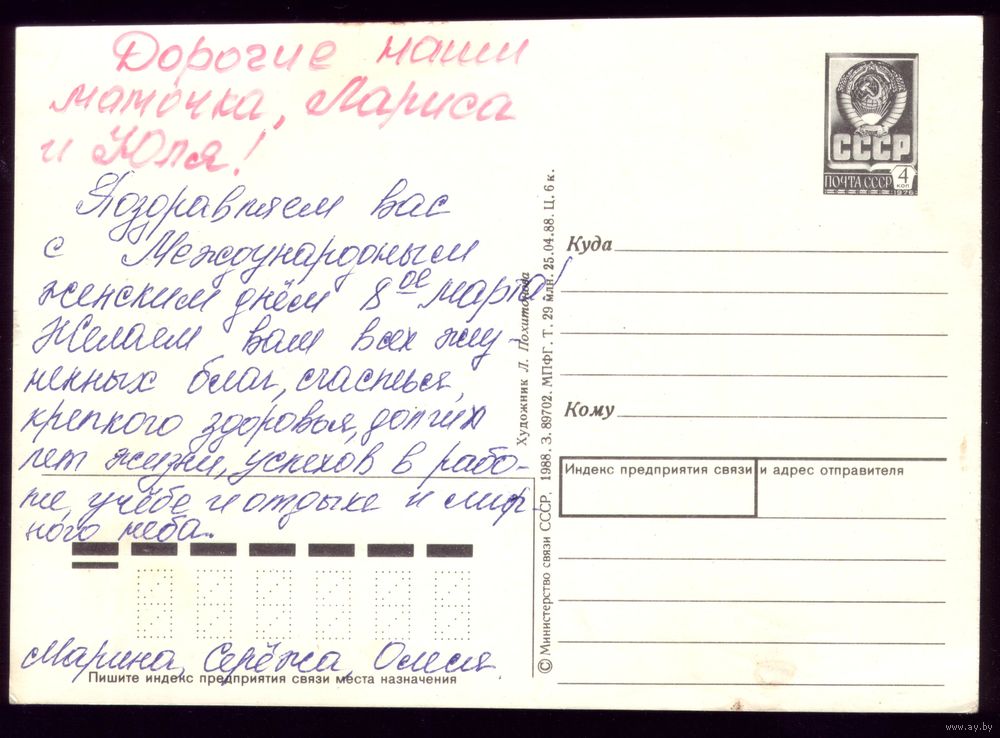 Дорогие наши
мамочка, Лариса
и Юля!
Поздравляем вас
с Международным
женским днём 8ое марта!
Желаем вам всех жиз-
ненных благ, счастья,
крепкого здоровья, долгих
лет жизни, успехов в рабо-
те, учёбе и отдыхе и мир-
ного неба.
Марина, Серёжа, Олеся
Пишите индекс предприятия связи места назначения
Художник Л. Похитонова
© Министерство связи СССР, 1988. З. 89702. МПФГ. Т. 29 млн. 25.04.88. Ц. 6 к.
СССР
ПОЧТА СССР
4
КОП
1976
Куда
Кому
Индекс предприятия связи и адрес отправителя
www.ay.by